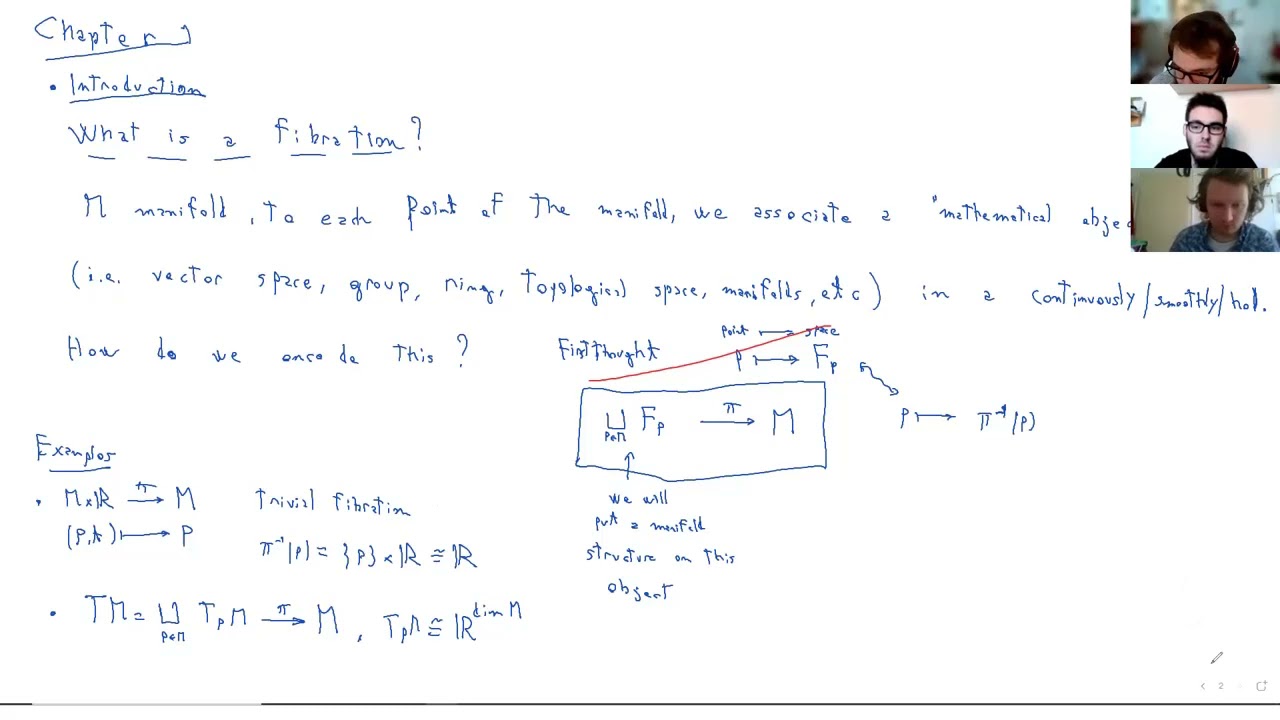 Chapter 1
• Introduction
What is a fibration?
M manifold, to each point of the manifold, we associate a "mathematical obje
(i.e. vector space, group, ring, topological space, manifolds, etc) in a continuously/smoothly/hol.
How do we encode this?
First thought
point ⟼ space
p ⟼ F_p
⊔_{p∈M} F_p —π→ M
p ⟼ π⁻¹(p)
we will
put a manifold
structure on this
object
Examples
• M×ℝ —π→ M trivial fibration
(p,t) ⟼ p π⁻¹(p) = {p} × ℝ ≅ ℝ
• TM = ⊔_{p∈M} T_pM —π→ M, T_pM ≅ ℝ^{dim M}
2